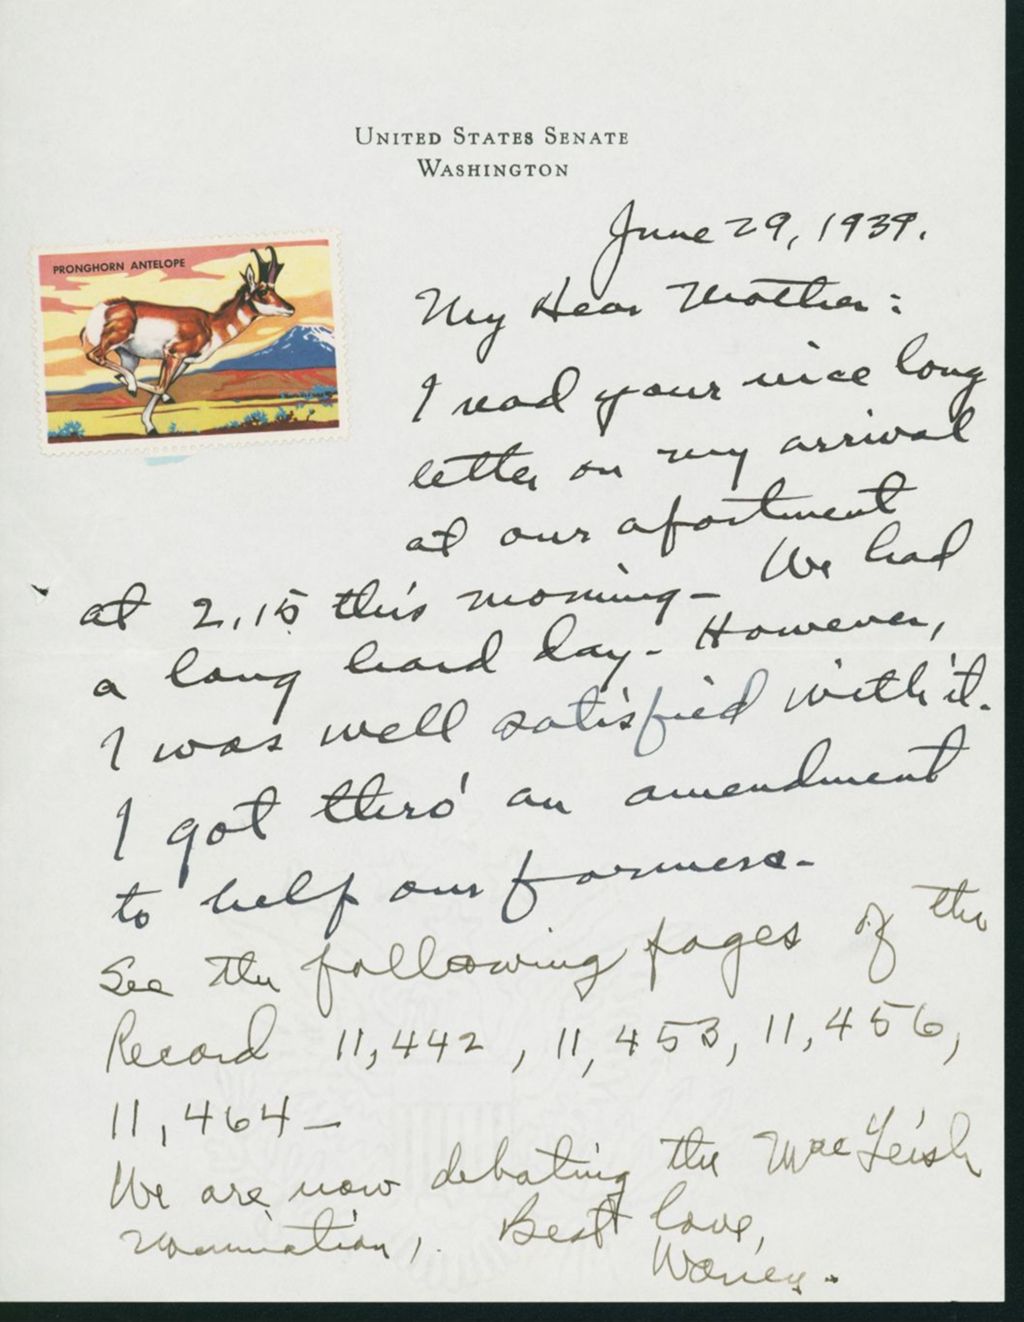 UNITED STATES SENATE
WASHINGTON
June 29, 1939.
PRONGHORN ANTELOPE
My Dear Mother:
I read your nice long
letter on my arrival
at our apartment
at 2.15 this morning— We had
a long hard day. However,
I was well satisfied with it.
I got thro' an amendment
to help our farmers.
See the following pages of the
Record 11,442, 11,453, 11,456,
11,464—
We are now debating the MacLeish
nomination. Best love,